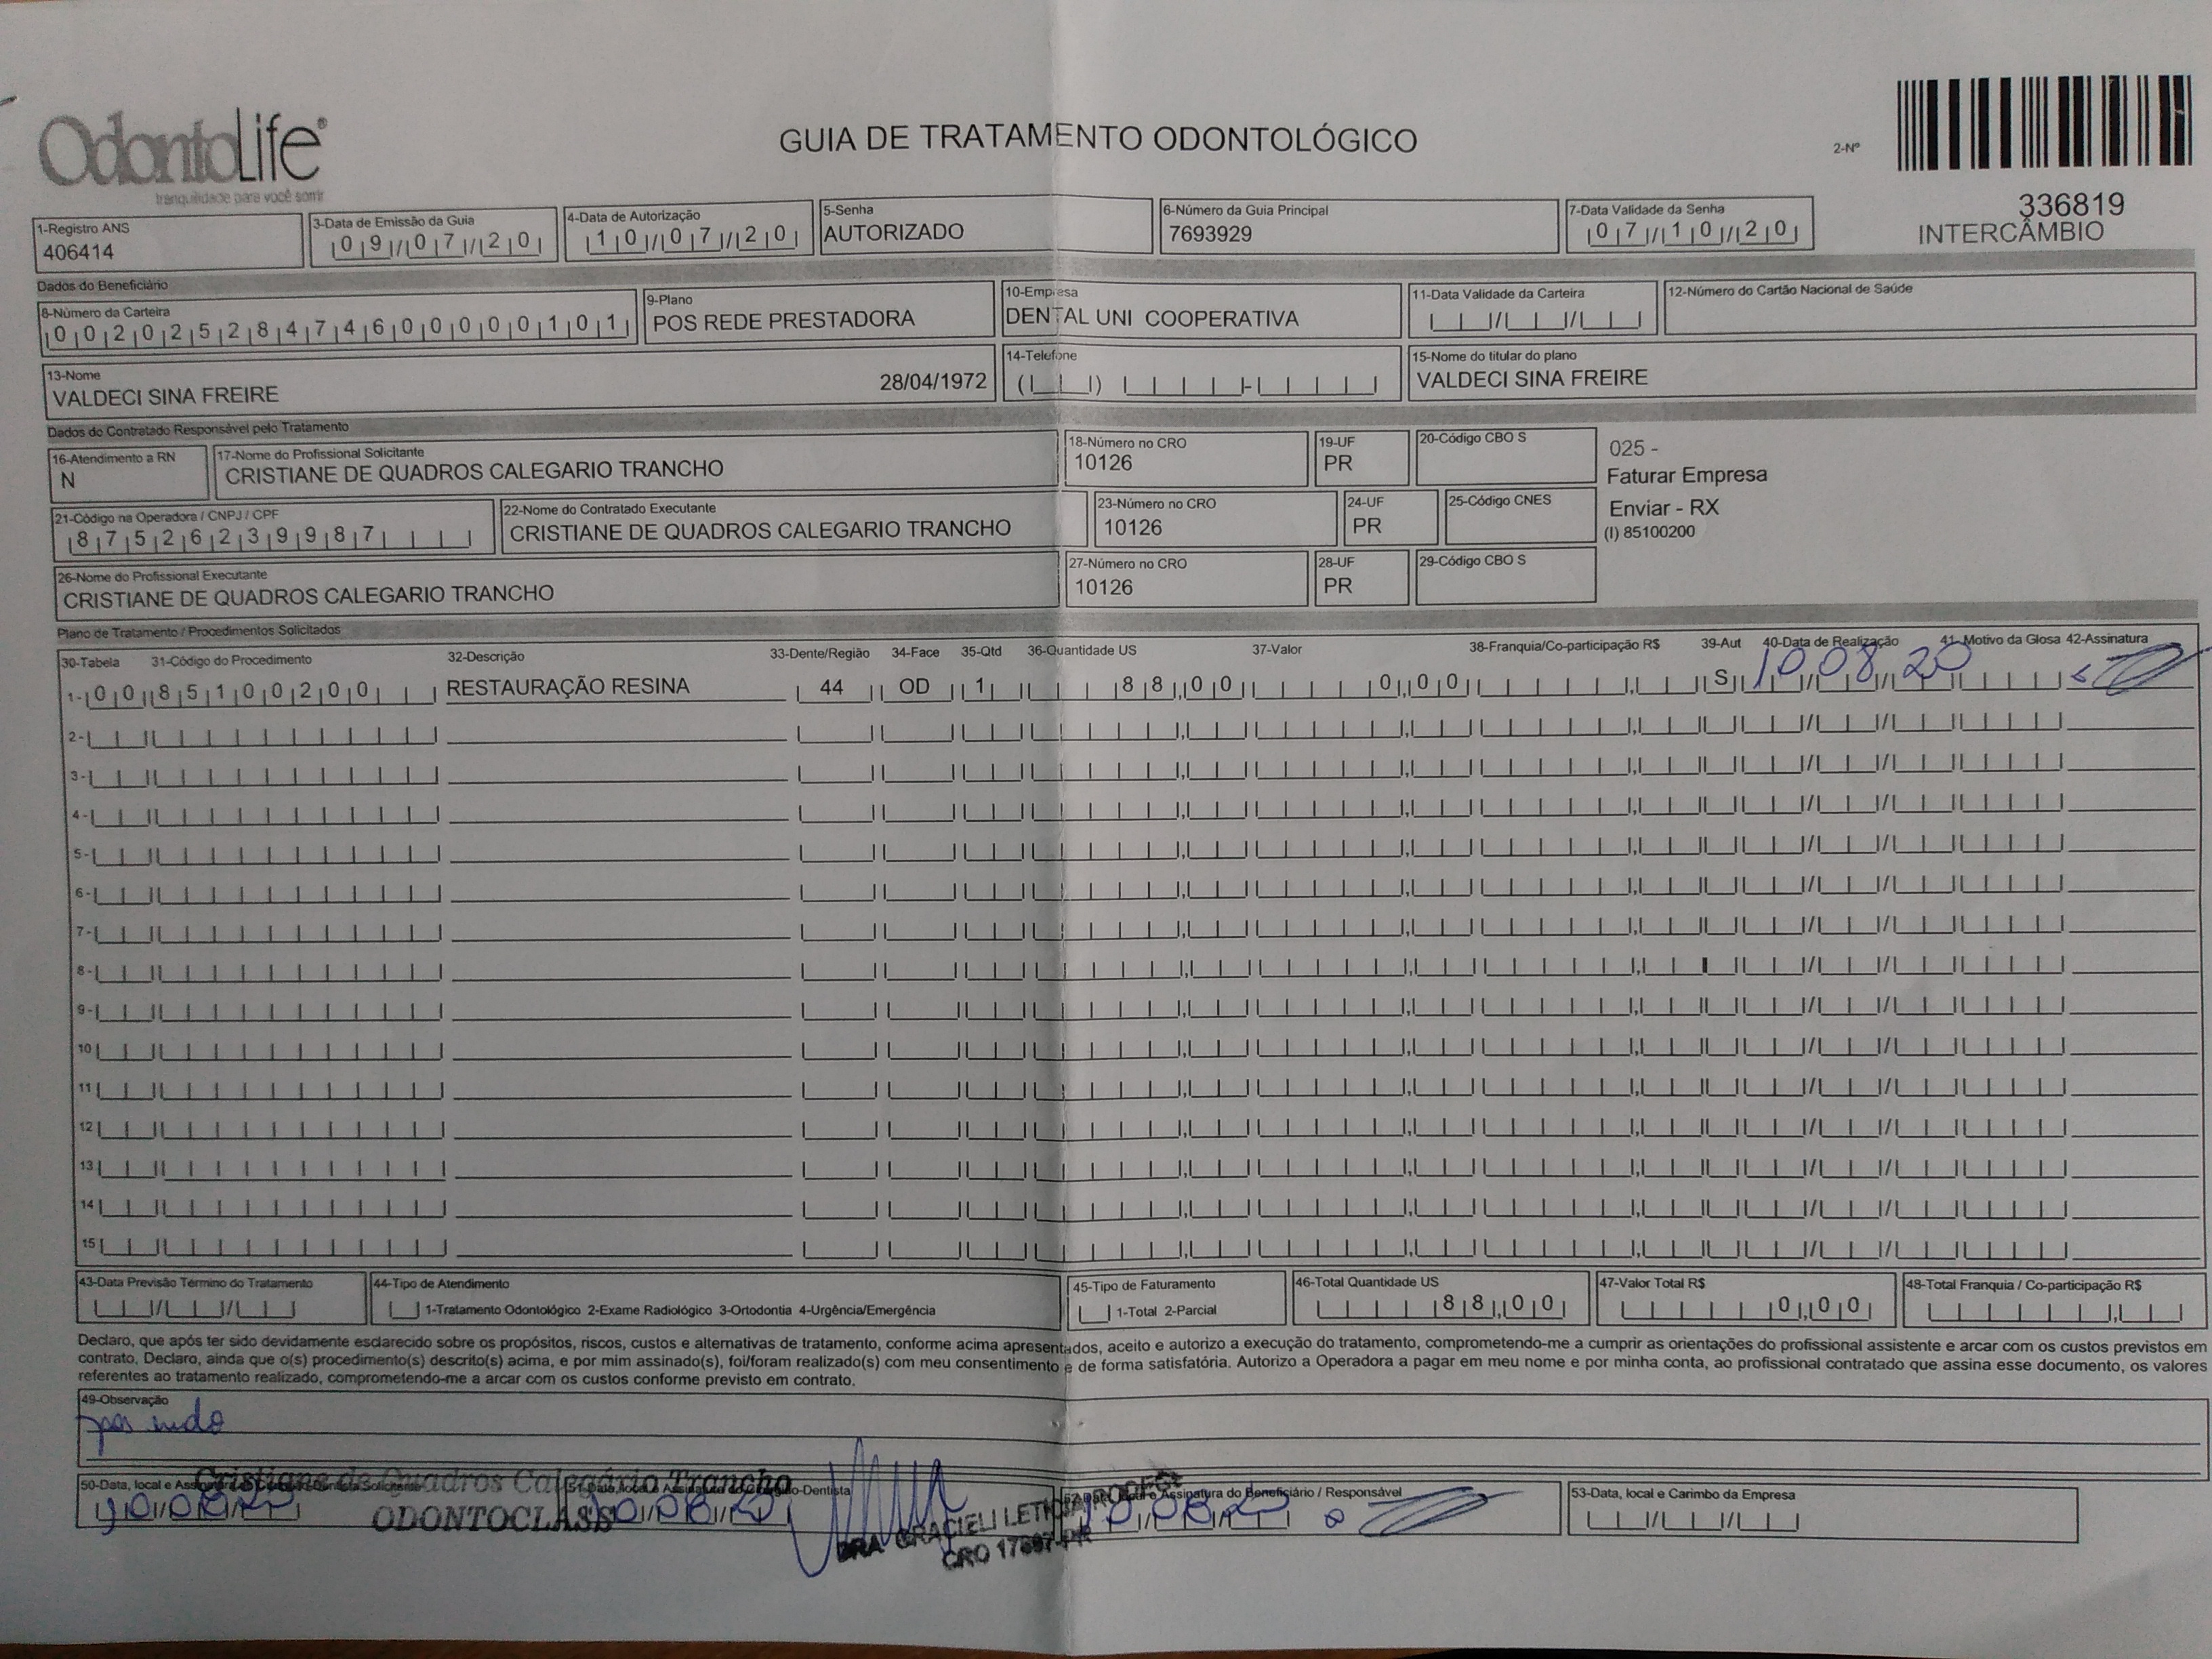 OdontoLife®
tranquilidade para você sorrir
GUIA DE TRATAMENTO ODONTOLÓGICO
2-Nº
336819
INTERCÂMBIO
1-Registro ANS
406414
3-Data de Emissão da Guia
09/07/20
4-Data de Autorização
10/07/20
5-Senha
AUTORIZADO
6-Número da Guia Principal
7693929
7-Data Validade da Senha
07/10/20
Dados do Beneficiário
8-Número da Carteira
00202528474600000101
9-Plano
POS REDE PRESTADORA
10-Empresa
DENTAL UNI COOPERATIVA
11-Data Validade da Carteira
12-Número do Cartão Nacional de Saúde
13-Nome
VALDECI SINA FREIRE 28/04/1972
14-Telefone
15-Nome do titular do plano
VALDECI SINA FREIRE
Dados do Contratado Responsável pelo Tratamento
16-Atendimento a RN
N
17-Nome do Profissional Solicitante
CRISTIANE DE QUADROS CALEGARIO TRANCHO
18-Número no CRO
10126
19-UF
PR
20-Código CBO S
025 -
Faturar Empresa
Enviar - RX
(I) 85100200
21-Código na Operadora / CNPJ / CPF
87526239987
22-Nome do Contratado Executante
CRISTIANE DE QUADROS CALEGARIO TRANCHO
23-Número no CRO
10126
24-UF
PR
25-Código CNES
26-Nome do Profissional Executante
CRISTIANE DE QUADROS CALEGARIO TRANCHO
27-Número no CRO
10126
28-UF
PR
29-Código CBO S
Plano de Tratamento / Procedimentos Solicitados
30-Tabela 31-Código do Procedimento 32-Descrição 33-Dente/Região 34-Face 35-Qtd 36-Quantidade US 37-Valor 38-Franquia/Co-participação R$ 39-Aut 40-Data de Realização 41-Motivo da Glosa 42-Assinatura
1- 00 85100200 RESTAURAÇÃO RESINA 44 OD 1 88,00 0,00 S 10/08/20
2-
3-
4-
5-
6-
7-
8-
9-
10
11
12
13
14
15
43-Data Previsão Término do Tratamento
44-Tipo de Atendimento
1-Tratamento Odontológico 2-Exame Radiológico 3-Ortodontia 4-Urgência/Emergência
45-Tipo de Faturamento
1-Total 2-Parcial
46-Total Quantidade US
88,00
47-Valor Total R$
0,00
48-Total Franquia / Co-participação R$
Declaro, que após ter sido devidamente esclarecido sobre os propósitos, riscos, custos e alternativas de tratamento, conforme acima apresentados, aceito e autorizo a execução do tratamento, comprometendo-me a cumprir as orientações do profissional assistente e arcar com os custos previstos em
contrato. Declaro, ainda que o(s) procedimento(s) descrito(s) acima, e por mim assinado(s), foi/foram realizado(s) com meu consentimento e de forma satisfatória. Autorizo a Operadora a pagar em meu nome e por minha conta, ao profissional contratado que assina esse documento, os valores
referentes ao tratamento realizado, comprometendo-me a arcar com os custos conforme previsto em contrato.
49-Observação
Cristiane de Quadros Calegário Trancho
ODONTOCLASS
50-Data, local e Assinatura do Cirurgião-Dentista Solicitante
10/08/20
51-Data, local e Assinatura do Cirurgião-Dentista
10/08/20
DRA GRACIELI LETICIA
52-Data, local e Assinatura do Beneficiário / Responsável
10/08/20
53-Data, local e Carimbo da Empresa